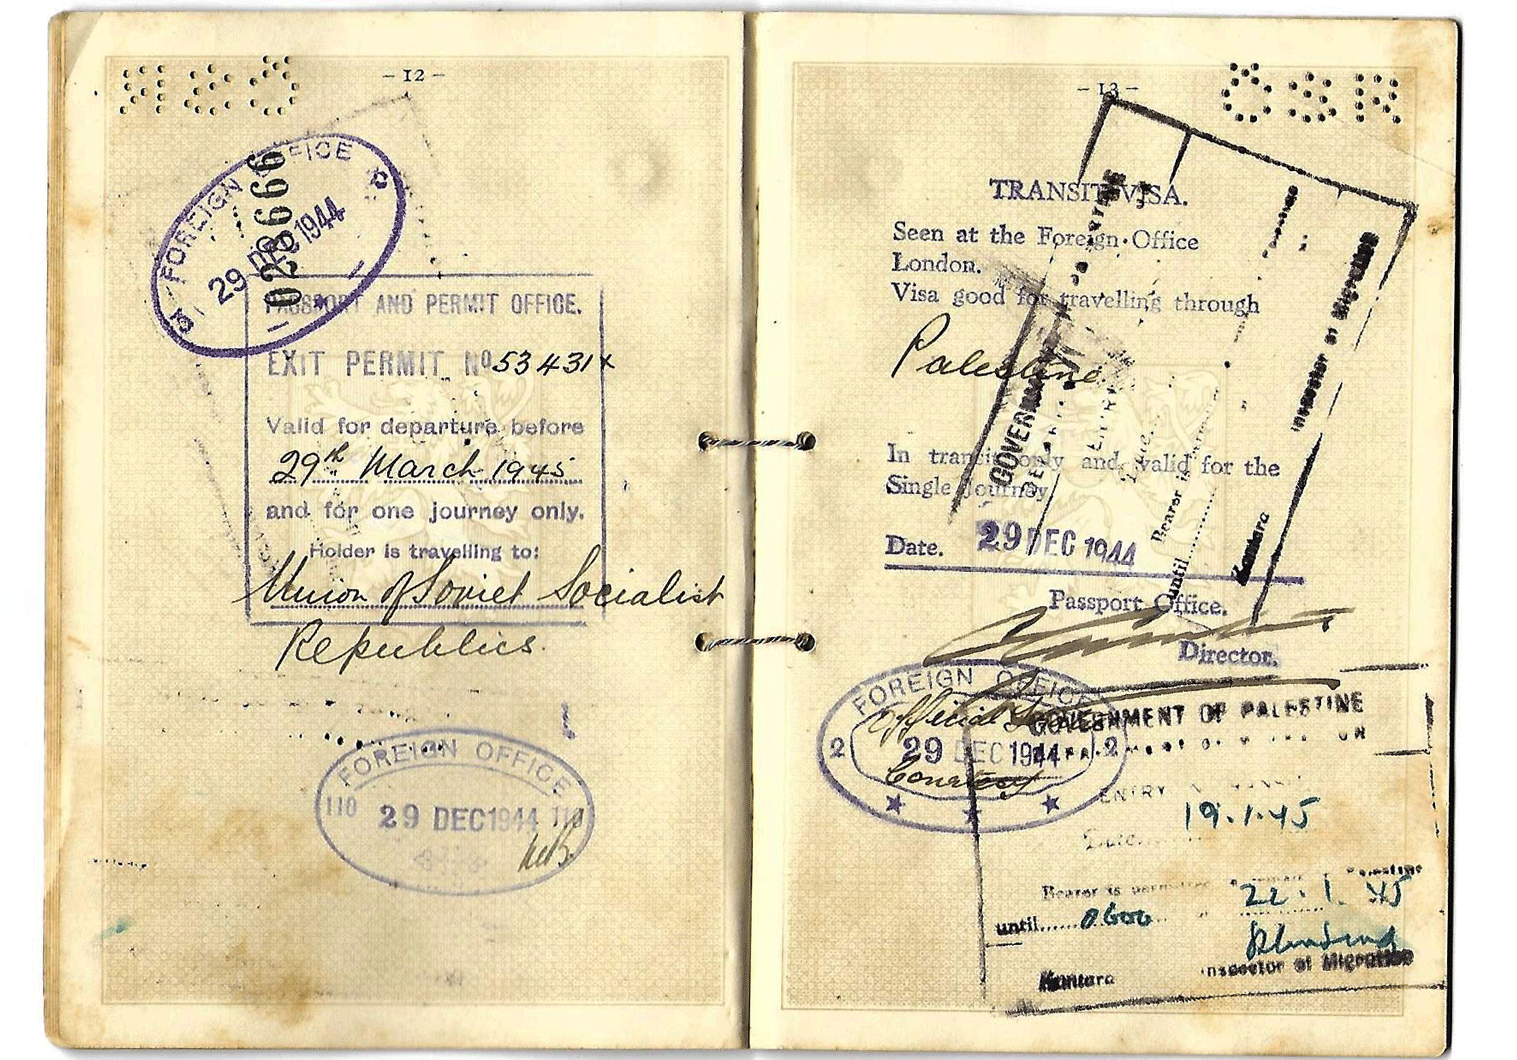 - 12 -
FOREIGN OFFICE
29 DEC 1944
028666
PASSPORT AND PERMIT OFFICE.
EXIT PERMIT No 53431x
Valid for departure before
29th March 1945
and for one journey only.
Holder is travelling to:
Union of Soviet Socialist
Republics.
FOREIGN OFFICE
110 29 DEC 1944 110
- 13 -
ČSR
TRANSIT VISA.
Seen at the Foreign Office
London.
Visa good for travelling through
Palestine
In transit only and valid for the
Single Journey
Date. 29 DEC 1944
Passport Office.
Director.
Bearer is
until
Kantara
Inspector of Migration
FOREIGN OFFICE
Official
2 29 DEC 1944 2
Courtesy
GOVERNMENT OF PALESTINE
ENTRY
19.1.45
Date
Bearer is permitted
until 0600 22.1.45
Kantara Inspector of Migration